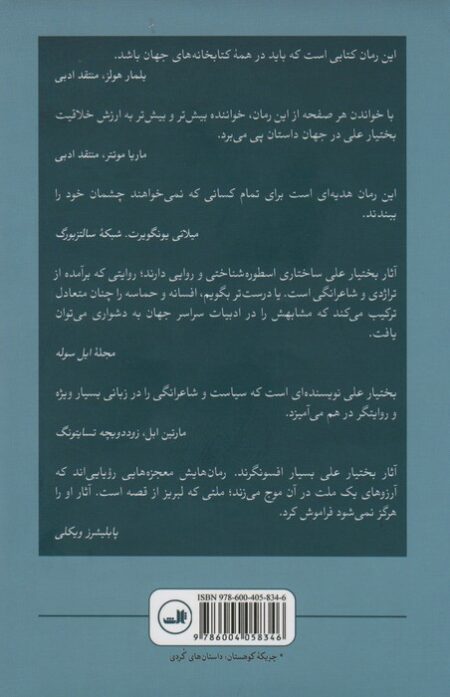 این رمان کتابی است که باید در همهٔ کتابخانه‌های جهان باشد.
یلمار هولز، منتقد ادبی
با خواندن هر صفحه از این رمان، خواننده بیش‌تر و بیش‌تر به ارزش خلاقیت
بختیار علی در جهان داستان پی می‌برد.
ماریا موئتر، منتقد ادبی
این رمان هدیه‌ای است برای تمام کسانی که نمی‌خواهند چشمان خود را
ببندند.
میلانی یونگویرت. شبکهٔ سالتزبورگ
آثار بختیار علی ساختاری اسطوره‌شناختی و روایی دارند؛ روایتی که برآمده از
تراژدی و شاعرانگی است. یا درست‌تر بگویم، افسانه و حماسه را چنان متعادل
ترکیب می‌کند که مشابهش را در ادبیات سراسر جهان به دشواری می‌توان
یافت.
مجلهٔ ایل سوله
بختیار علی نویسنده‌ای است که سیاست و شاعرانگی را در زبانی بسیار ویژه
و روایتگر در هم می‌آمیزد.
مارتین ابل، زوددویچه تسایتونگ
آثار بختیار علی بسیار افسونگرند. رمان‌هایش معجزه‌هایی رؤیایی‌اند که
آرزوهای یک ملت در آن موج می‌زند؛ ملتی که لبریز از قصه است. آثار او را
هرگز نمی‌شود فراموش کرد.
پابلیشرز ویکلی
ISBN 978-600-405-834-6
ثالث
9 786004 058346
* چریکهٔ کوهستان: داستان‌های کُردی